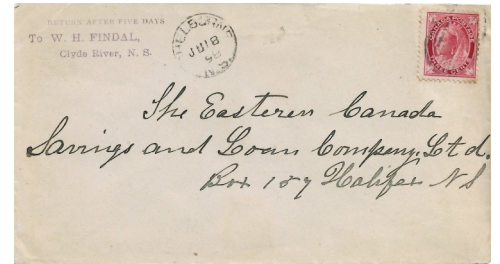 RETURN AFTER FIVE DAYS
To W. H. FINDAL,
Clyde River, N. S.
JU 18
The Easteren Canada
Savings and Loan Company, Ltd.
Box 157 Halifax NS